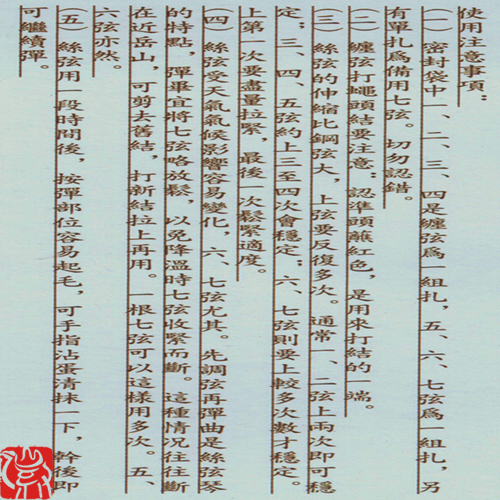 使用注意事項：
(一) 密封袋中一、二、三、四是纏弦為一組扎，五、六、七弦為一組扎，另
有單扎為備用七弦。切勿認錯。
(二) 纏弦打蠅頭結要注意：認準頭蘸紅色，是用來打結的一端。
(三) 絲弦的伸縮比鋼弦大，上弦要反復多次。通常一、二弦上兩次即可穩
定；三、四、五弦約上三至四次會穩定；六、七弦則要上較多次數才穩定。
上第一次要盡量拉緊，最後一次鬆緊適度。
(四) 絲弦受天氣氣候影響容易變化，六、七弦尤其。先調弦再彈曲是絲弦琴
的特點，彈畢宜將七弦略放鬆，以免降溫時七弦收緊而斷。這種情况往往斷
在近岳山，可剪去舊結，打新結拉上再用。一根七弦可以這樣用多次。五、
六弦亦然。
(五) 絲弦用一段時間後，按彈部位容易起毛，可手指沾蛋清抹一下，幹後即
可繼續彈。